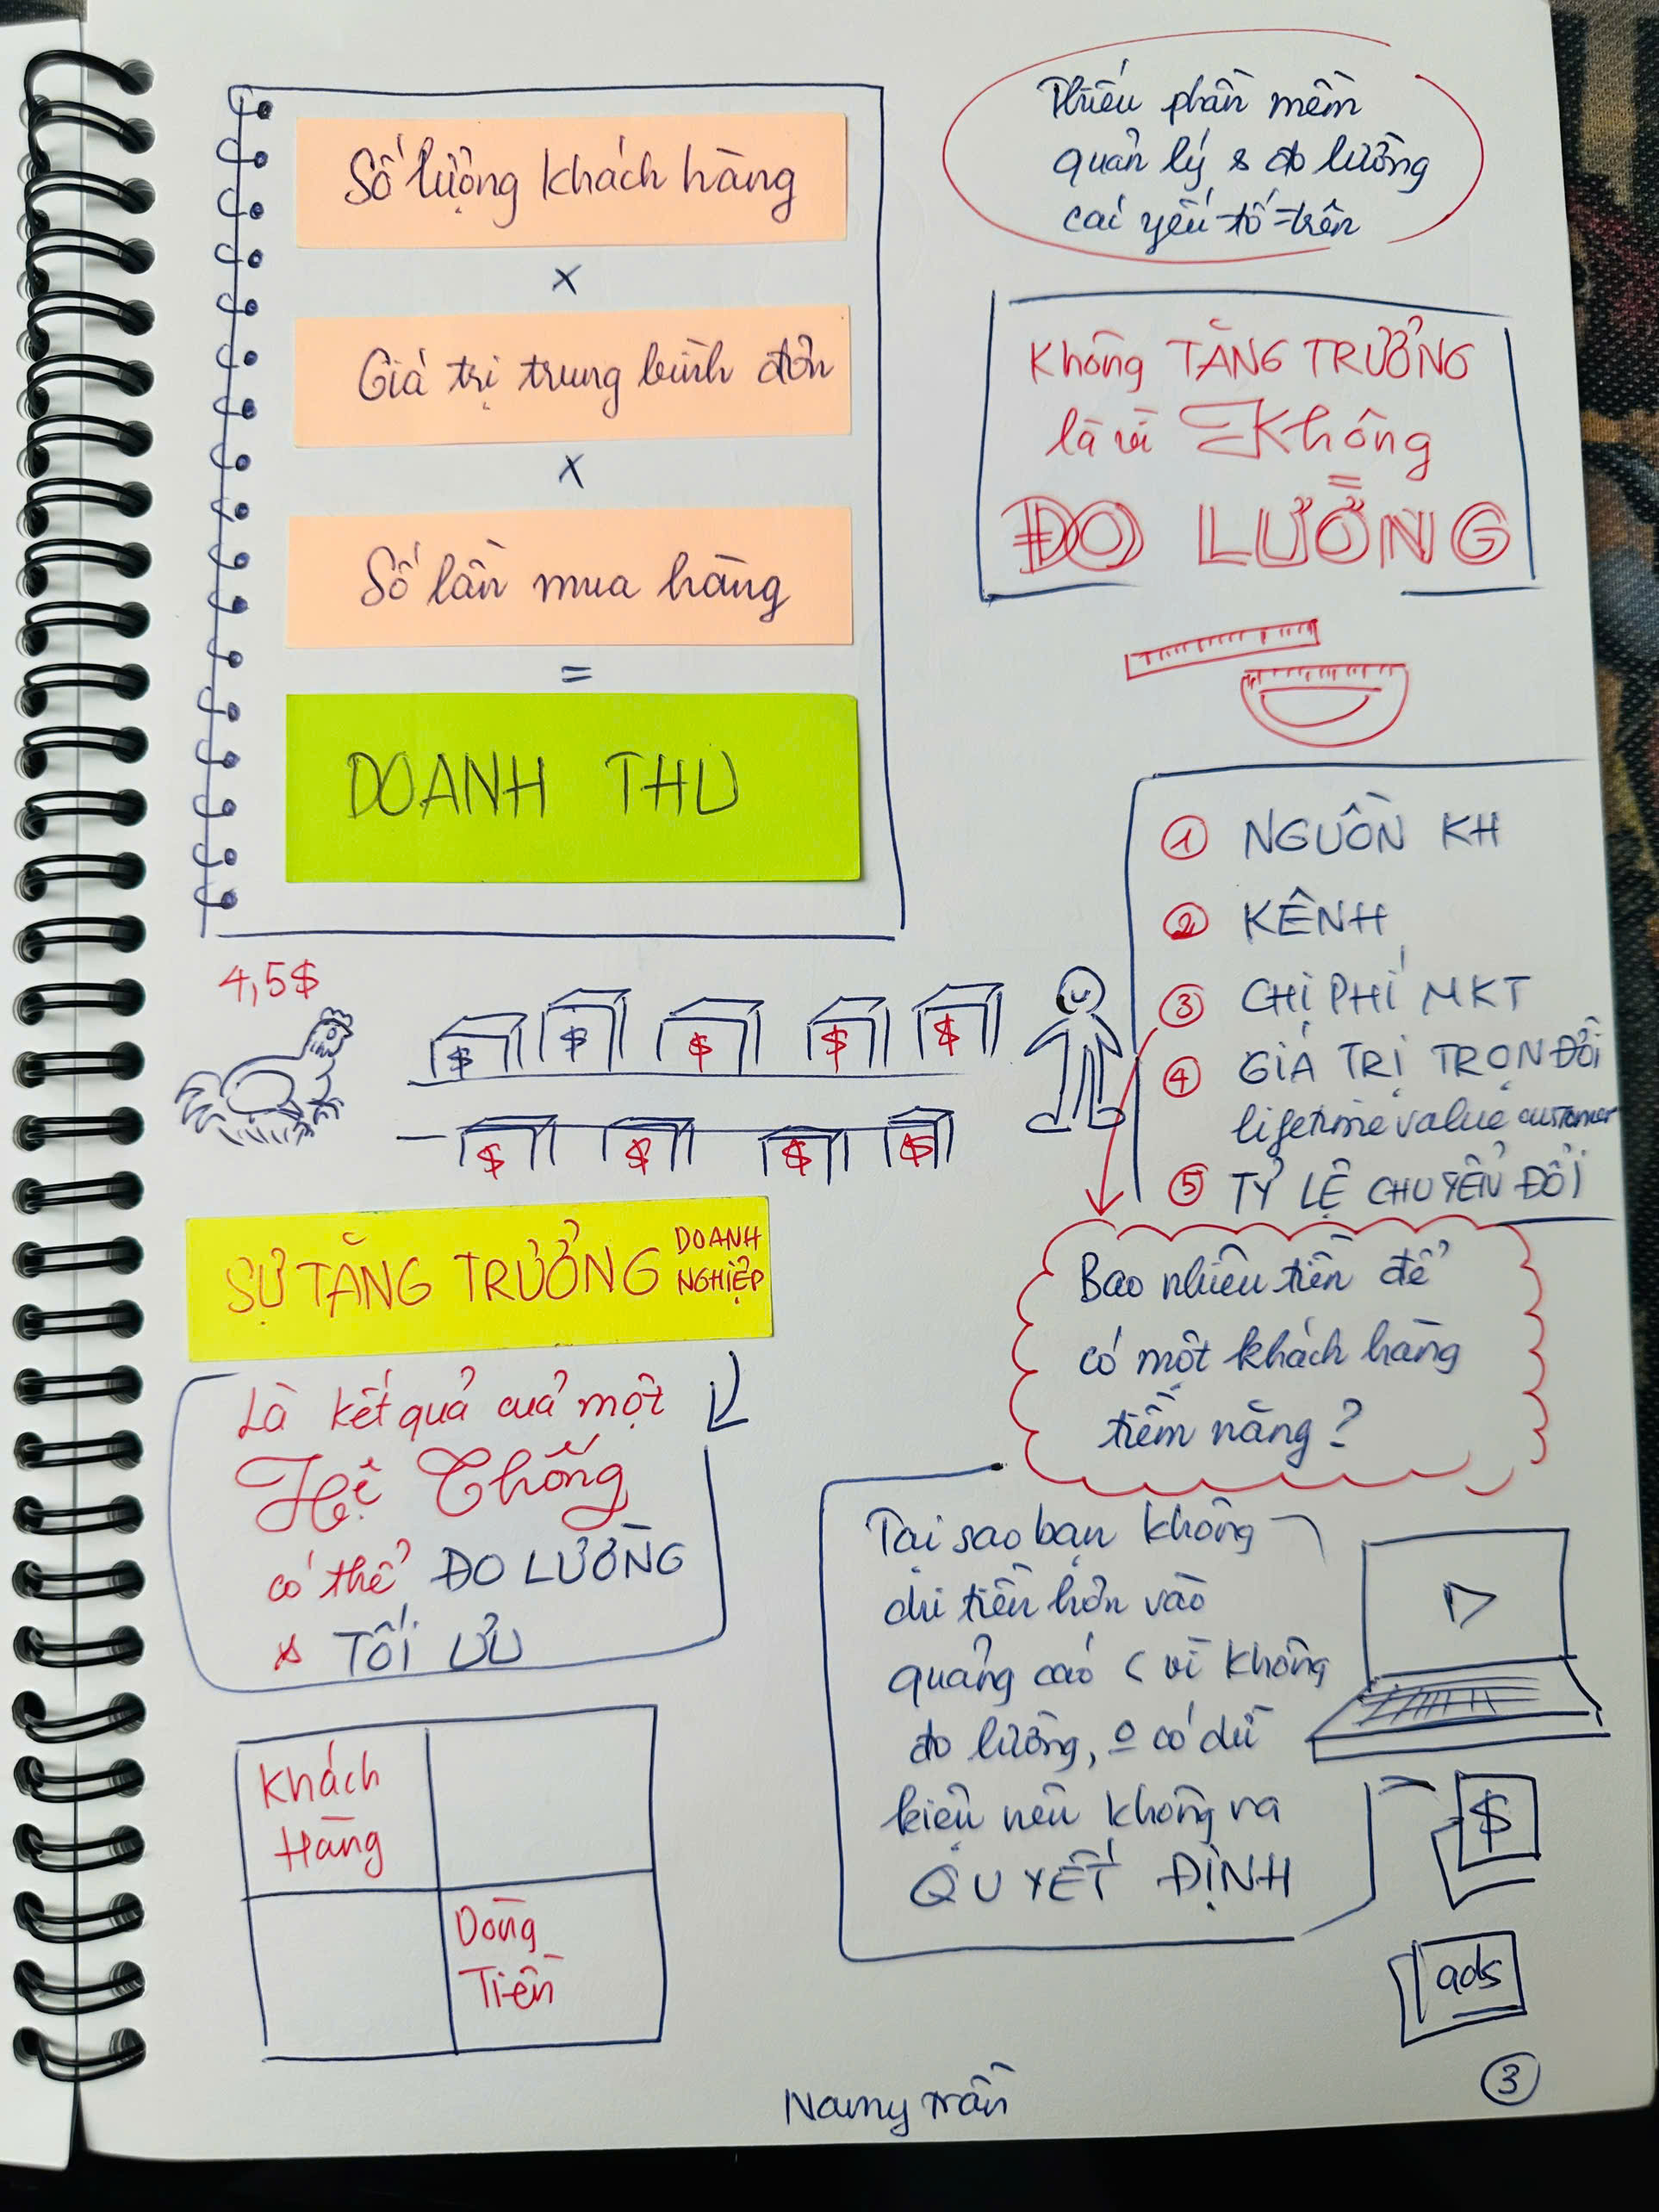 Số lượng khách hàng
x
Giá trị trung bình đơn
x
Số lần mua hàng
=
DOANH THU
Thiếu phần mềm
quản lý & đo lường
các yếu tố trên
Không TĂNG TRƯỞNG
là vì Không
ĐO LƯỜNG
① NGUỒN KH
② KÊNH
③ CHI PHÍ MKT
④ GIÁ TRỊ TRỌN ĐỜI
lifetime value customer
⑤ TỶ LỆ CHUYỂN ĐỔI
4,5$
$ $ $ $ $
$ $ $ $
SỰ TĂNG TRƯỞNG DOANH
NGHIỆP
Là kết quả của một
Hệ Thống
có thể ĐO LƯỜNG
& TỐI ƯU
Bao nhiêu tiền để
có một khách hàng
tiềm năng?
Tại sao bạn không
chi tiền hơn vào
quảng cáo ( vì không
đo lường, o có dữ
kiện nên không ra
QUYẾT ĐỊNH
Khách
Hàng
Dòng
Tiền
$
ads
Namy trần
③